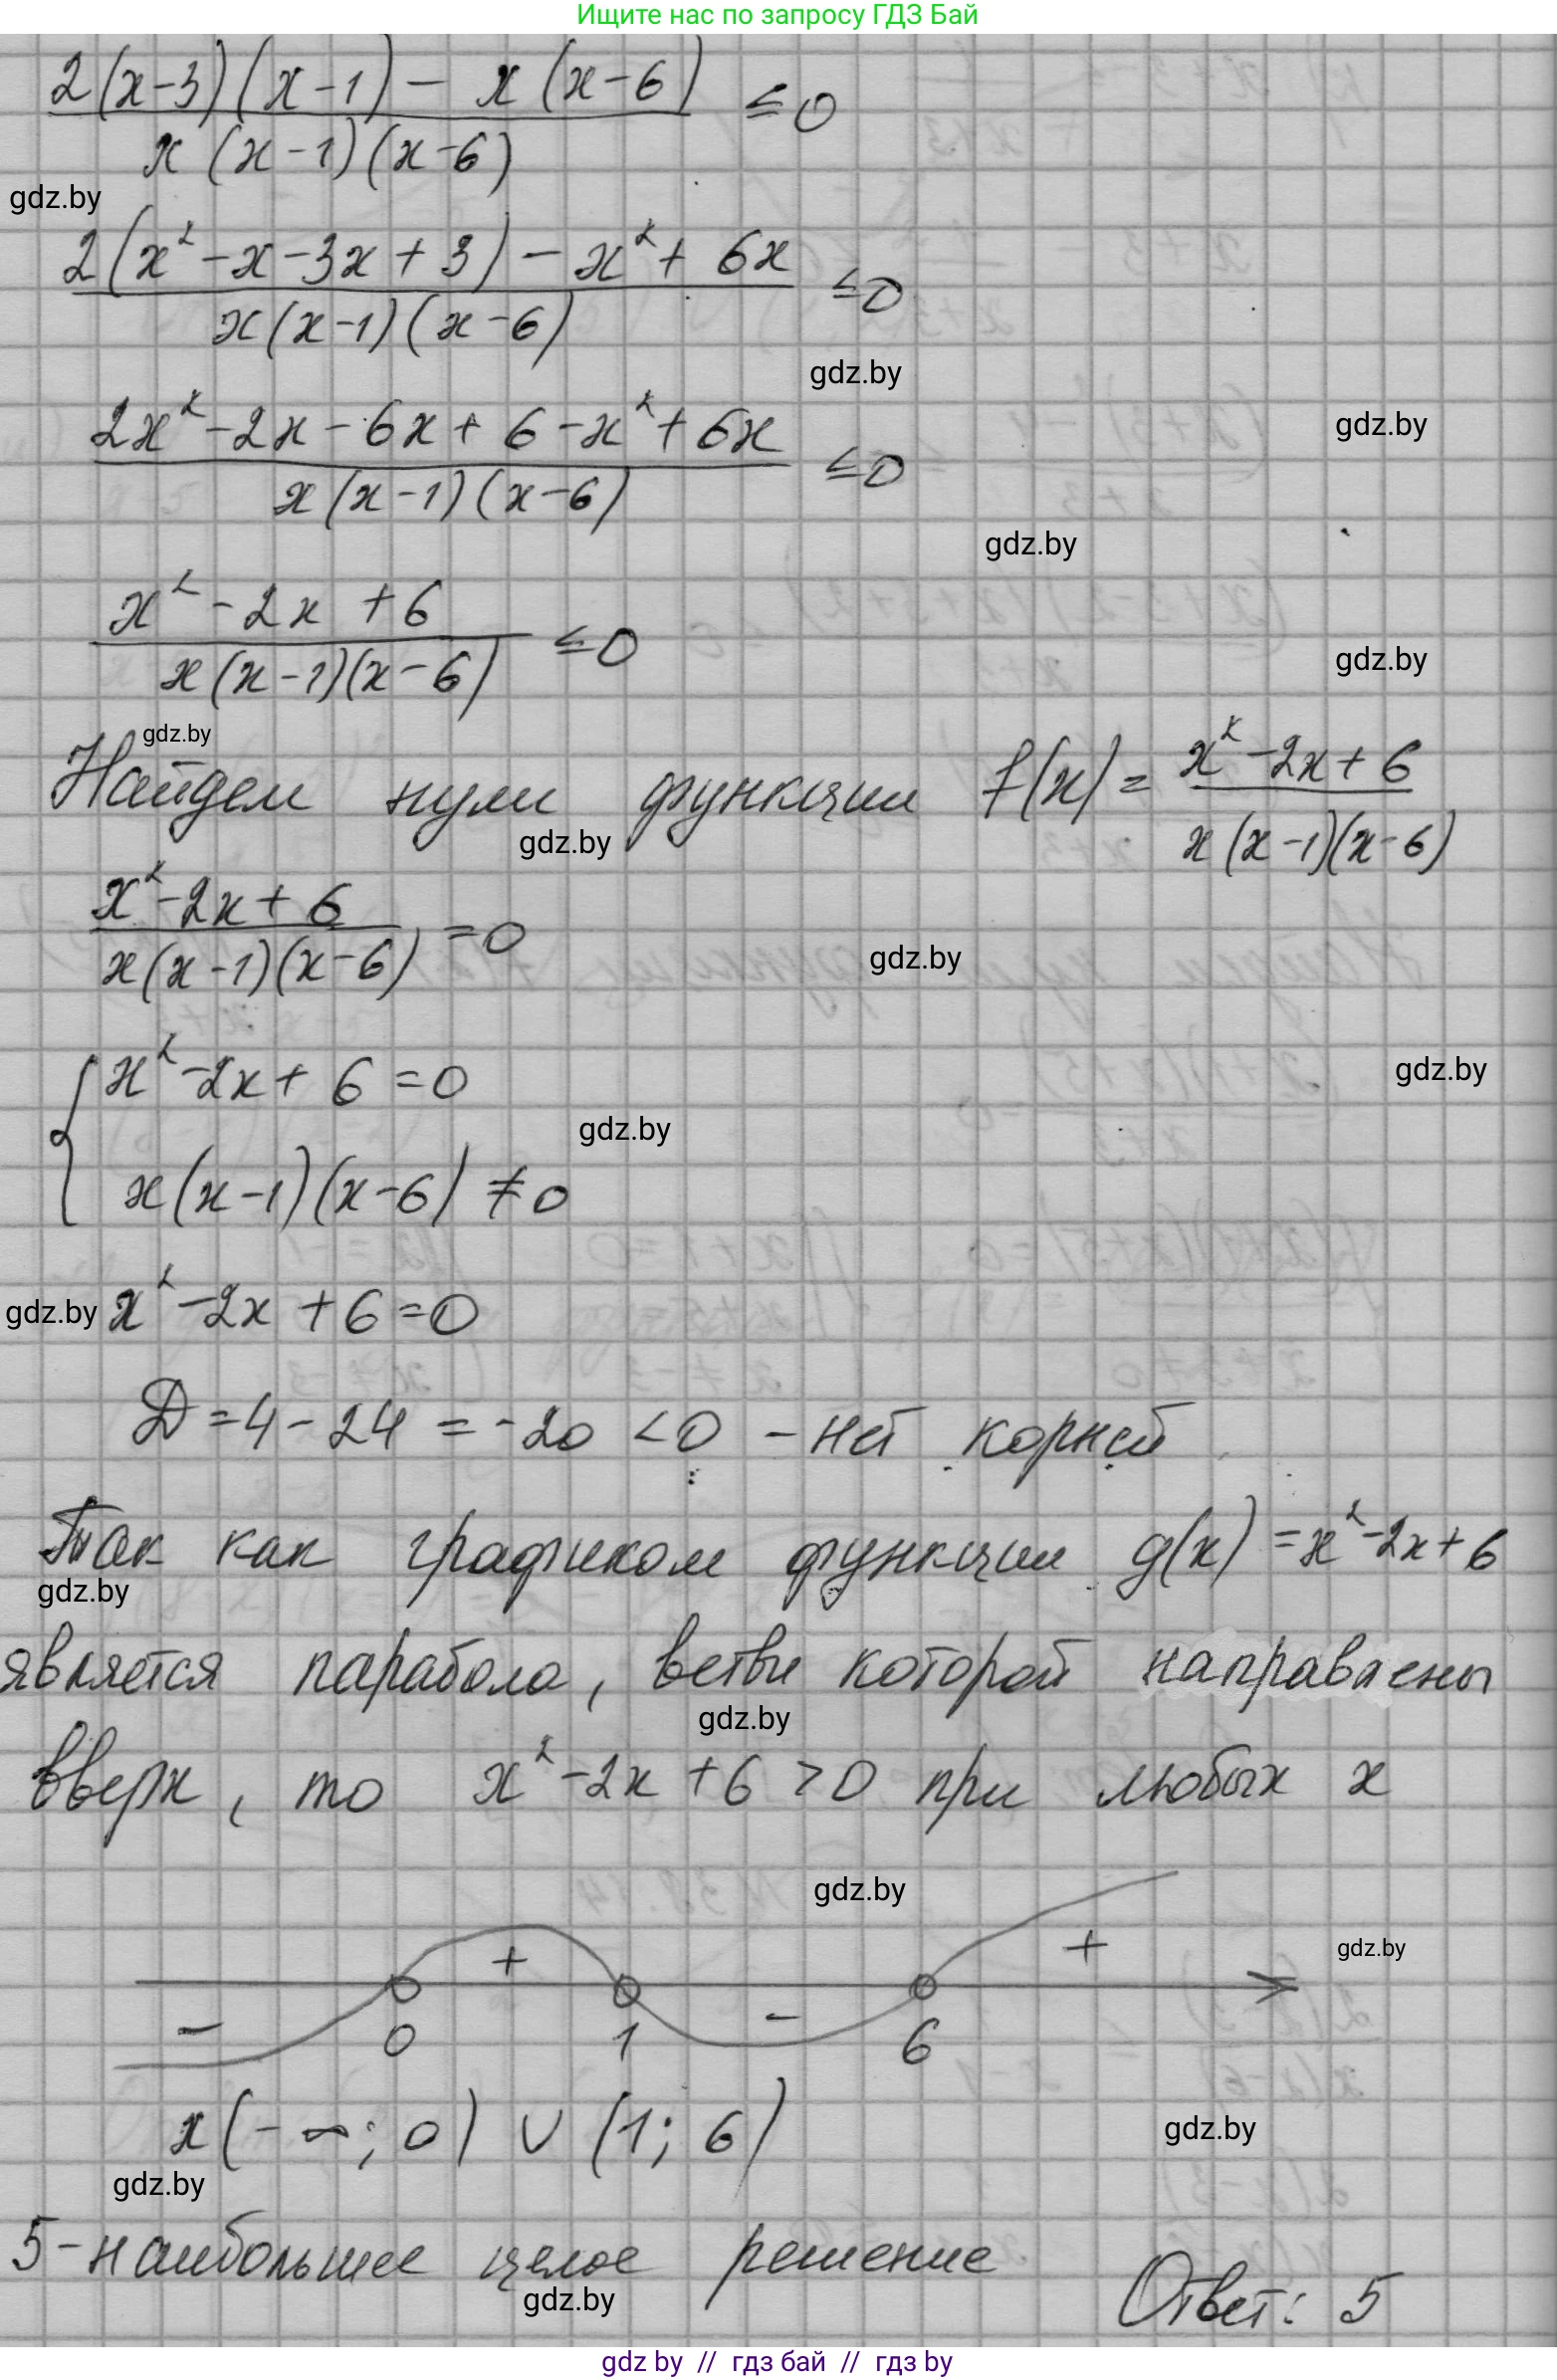 Ищите нас по запросу ГДЗ Бай
2(x-3)(x-1) - x(x-6)
≤0
x(x-1)(x-6)
gdz.by
2(x²-x-3x+3)-x²+6x
≤0
x(x-1)(x-6)
gdz.by
2x²-2x-6x+6-x²+6x
≤0
gdz.by
x(x-1)(x-6)
gdz.by
x²-2x+6
≤0
x(x-1)(x-6)
gdz.by
gdz.by
Найдем нули функции f(x)= x²-2x+6
x(x-1)(x-6)
gdz.by
x²-2x+6
=0
x(x-1)(x-6)
gdz.by
x²-2x+6=0
gdz.by
gdz.by
x(x-1)(x-6)≠0
gdz.by
x²-2x+6=0
D=4-24=-20<0 - нет корней
Так как графиком функции g(x)=x²-2x+6
gdz.by
является парабола, ветви которой направлены
gdz.by
вверх, то x²-2x+6>0 при любых x
gdz.by
+ +
gdz.by
- -
0 1 6
x(-∞; 0) ∪ (1; 6)
gdz.by
gdz.by
5-наибольшее целое решение
gdz.by
Ответ: 5
gdz by // гдз бай // гдз by